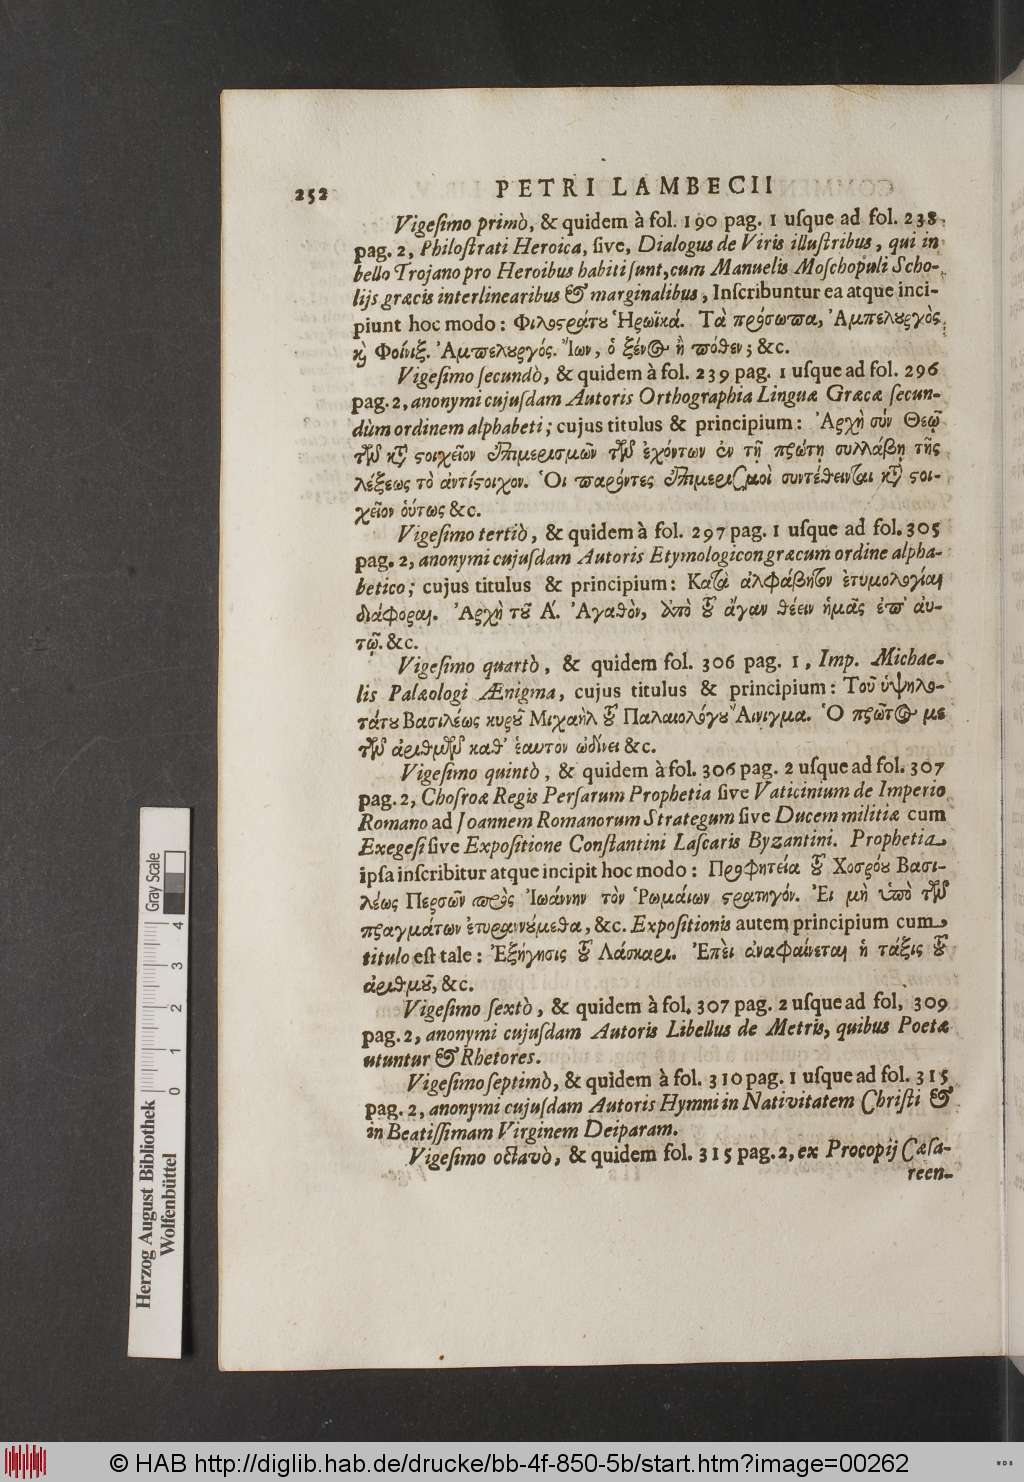 252 PETRI LAMBECII
Vigeſimo primò, & quidem à fol. 190 pag. 1 uſque ad fol. 238
pag. 2, Philoſtrati Heroica, ſive, Dialogus de Viris illuſtribus, qui in
bello Trojano pro Heroibus habiti ſunt, cum Manuelis Moſchopuli Scho-
lijs græcis interlinearibus & marginalibus, Inſcribuntur ea atque inci-
piunt hoc modo: Φιλοςράτου Ἡρωϊκά. Τὰ πρόσωπα, Ἀμπελουργὸς
καὶ Φοίνιξ. Ἀμπελουργός. Ἴων, ὁ ξένος ἢ πόθεν; &c.
Vigeſimo ſecundò, & quidem à fol. 239 pag. 1 uſque ad fol. 296
pag. 2, anonymi cujuſdam Autoris Orthographia Linguæ Græcæ ſecun-
dùm ordinem alphabeti; cujus titulus & principium: Ἀρχὴ σύν Θεῷ
τῶν κτ ςοιχεῖον ἐπιμερισμῶν τῶν ἐχόντων ἐν τῇ πρώτῃ συλλάβῃ τῆς
λέξεως τὸ ἀντίςοιχον. Ὁι παρόντες ἐπιμερισμοὶ συντέθεινται κτ ςοι-
χεῖον ὁύτως &c.
Vigeſimo tertiò, & quidem à fol. 297 pag. 1 uſque ad fol. 305
pag. 2, anonymi cujuſdam Autoris Etymologicon græcum ordine alpha-
betico; cujus titulus & principium: Κατὰ ἀλφάβητον ἐτυμολογίαι
διάφοραι. Ἀρχὴ τοῦ Ά. Ἀγαθὸν, ἀπὸ τοῦ ἄγαν θέειν ἡμᾶς ἐπ' ἀυ-
τῷ. &c.
Vigeſimo quartò, & quidem fol. 306 pag. 1, Imp. Michae-
lis Palæologi Ænigma, cujus titulus & principium: Τοῦ ὑψηλο-
τάτου Βασιλέως κυροῦ Μιχαὴλ τοῦ Παλαιολόγου Ἄινιγμα. Ὁ πρῶτος με
τῶν ἀριθμῶν καθ' ἑαυτον ὠδίνει &c.
Vigeſimo quintò, & quidem à fol. 306 pag. 2 uſque ad fol. 307
pag. 2, Choſroæ Regis Perſarum Prophetia ſive Vaticinium de Imperio
Romano ad Joannem Romanorum Strategum ſive Ducem militiæ cum
Exegeſi ſive Expoſitione Conſtantini Laſcaris Byzantini. Prophetia
ipſa inſcribitur atque incipit hoc modo: Προφητεία τοῦ Χοσρόου Βασι-
λέως Περσῶν πρὸς Ἰωάννην τὸν Ῥωμαίων ςρατηγόν. Ἐι μὴ ὑπὸ τῶν
πραγμάτων ἐτυραννούμεθα, &c. Expoſitionis autem principium cum
titulo eſt tale: Ἐξήγησις τοῦ Λάσκαρι. Ἐπὲι ἀναφαίνεται ἡ τάξις τοῦ
ἀριθμοῦ, &c.
Vigeſimo ſextò, & quidem à fol. 307 pag. 2 uſque ad fol. 309
pag. 2, anonymi cujuſdam Autoris Libellus de Metris, quibus Poetæ
utuntur & Rhetores.
Vigeſimo ſeptimò, & quidem à fol. 310 pag. 1 uſque ad fol. 315
pag. 2, anonymi cujuſdam Autoris Hymni in Nativitatem Chriſti &
in Beatiſſimam Virginem Deiparam.
Vigeſimo octavò, & quidem fol. 315 pag. 2, ex Procopij Cæſa-
reen-
Herzog August Bibliothek
Wolfenbüttel
0 1 2 3 4
Gray Scale
© HAB http://diglib.hab.de/drucke/bb-4f-850-5b/start.htm?image=00262